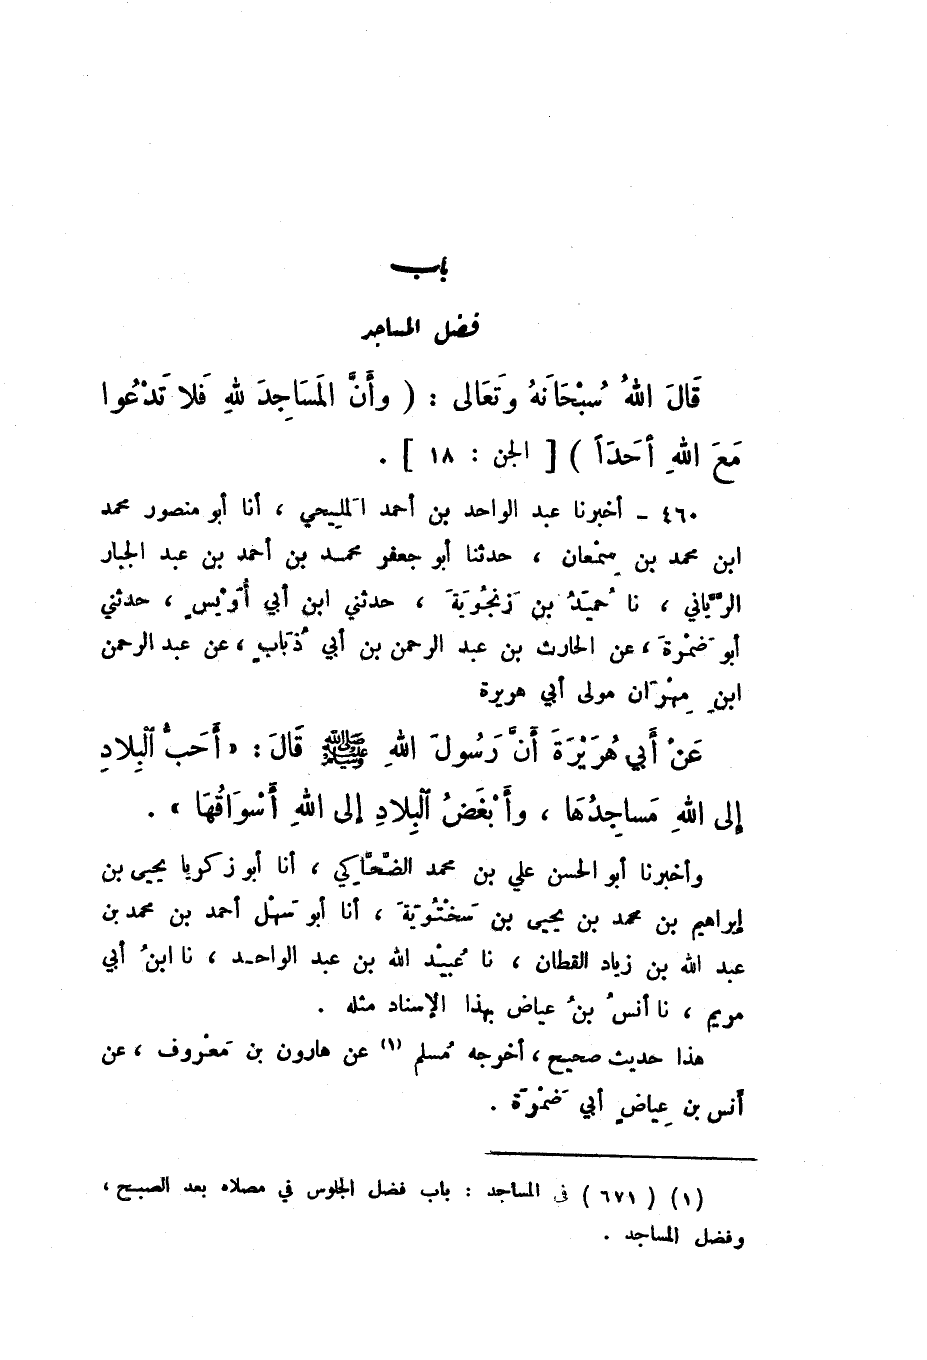 باب
فضل المساجد
قَالَ اللهُ سُبْحَانَهُ وَتَعَالى : ( وأَنَّ المَسَاجِدَ للهِ فَلا تَدْعُوا
مَعَ اللهِ أَحَدَاً ) [ الجن : ١٨ ] .
٤٦٠ ــ أخبرنا عبد الواحد بن أحمد المَلِيحي ، أنا أبو منصور محمد
ابن محمد بن سِمْعان ، حدثنا أبو جعفر محمد بن أحمد بن عبد الجبار
الرَّيَّاني ، نا حُميَدُ بن زَنجُويَةَ ، حدثني ابن أبي أُوَيْسٍ ، حدثني
أبو ضَمْرةَ ، عن الحارث بن عبد الرحمن بن أبي ذُبَابٍ ، عن عبد الرحمن
ابنِ مِهْرَان مولى أبي هريرة
عَنْ أَبي هُرَيْرَةَ أَنَّ رَسُولَ اللهِ ﷺ قَالَ : « أَحَبُّ البِلادِ
إلى اللهِ مَساجِدُهَا ، وأَبْغَضُ البِلادِ إلى اللهِ أَسْوَاقُهَا » .
وأخبرنا أبو الحسن علي بن محمد الضَّحَّاكِي ، أنا أبو زكريا يحيى بن
إبراهيم بن محمد بن يحيى بن سَخْتُويَةَ ، أنا أبو سَهْل أحمد بن محمد بن
عبد الله بن زياد القطان ، نا عُبيْد الله بن عبد الواحد ، نا ابنُ أبي
مريم ، نا أنسُ بنُ عياض بهذا الإسناد مثله .
هذا حديث صحيح ، أخرجه مُسلم (١) عن هارون بن مَعْروف ، عن
أنس بن عِياضٍ أبي ضَمْرَة .
(١) ( ٦٧١ ) في المساجد : باب فضل الجلوس في مصلاه بعد الصبح ،
وفضل المساجد .